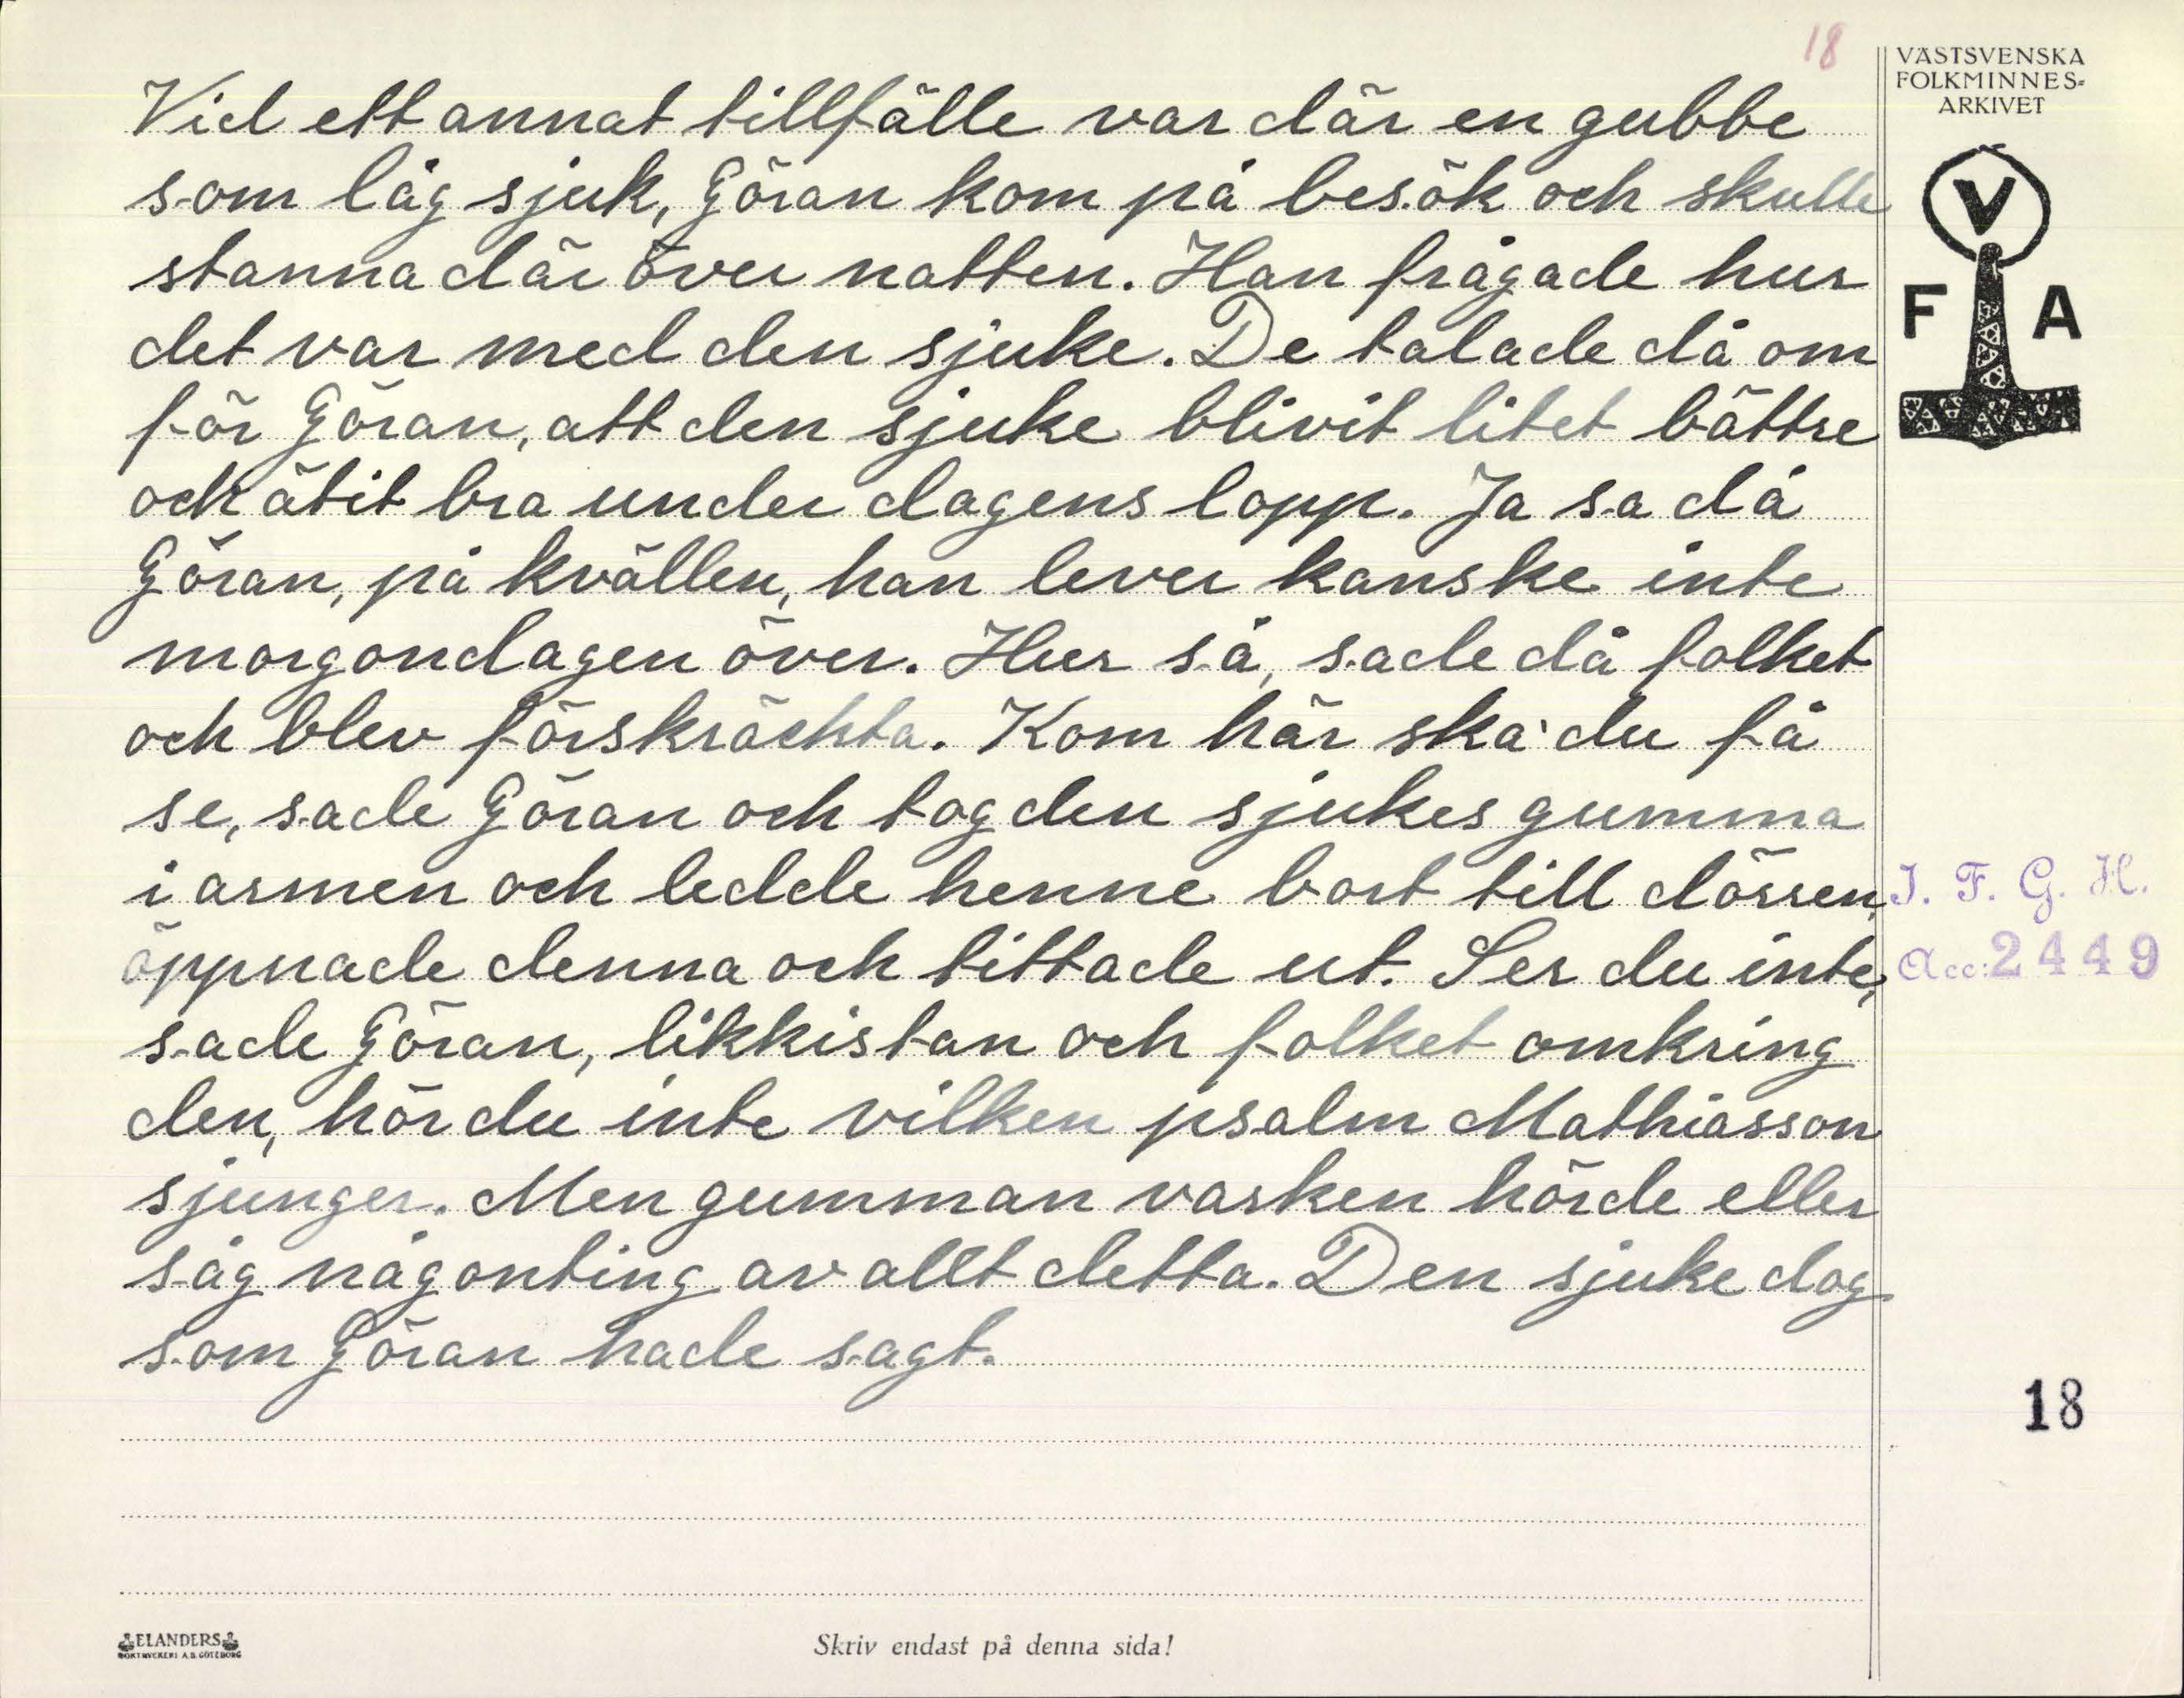 18
VÄSTSVENSKA
FOLKMINNES-
ARKIVET
V
F A
Vid ett annat tillfälle var där en gubbe
som låg sjuk, Göran kom på besök och skulle
stanna där över natten. Han frågade hur
det var med den sjuke. De talade då om
för Göran, att den sjuke blivit litet bättre
och ätit bra under dagens lopp. Ja sa då
Göran, på kvällen, han lever kanske inte
morgondagen över. Hur så, sade då folket
och blev förskräckta. Kom här ska' du få
se, sade Göran och tog den sjukes gumma
i armen och ledde henne bort till dörren,
öppnade denna och tittade ut. Ser du inte,
sade Göran, likkistan och folket omkring
den, hör du inte vilken psalm Mathiasson
sjunger. Men gumman varken hörde eller
såg någonting av allt detta. Den sjuke dog
som Göran hade sagt.
I. F. G. H.
Acc: 2449
18
ELANDERS
BOKTRYCKERI A.B. GÖTEBORG
Skriv endast på denna sida!